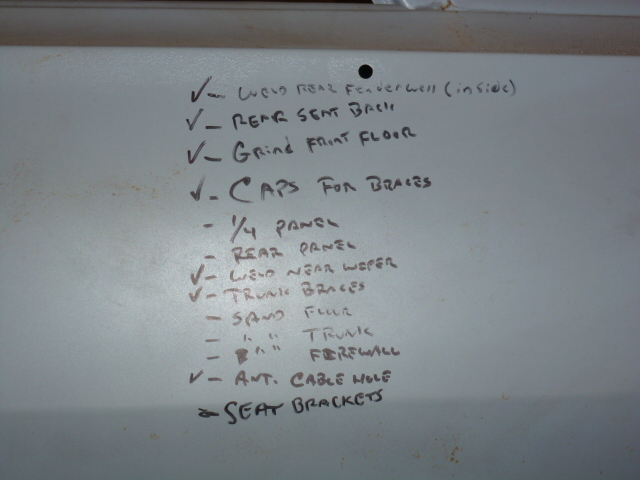 ✓ - WELD REAR FENDERWELL (inside)
✓ - REAR SEAT BACK
✓ - GRIND FRONT FLOOR
✓ - CAPS FOR BRACES
- 1/4 PANEL
- REAR PANEL
✓ - WELD NEAR WIPER
✓ - TRUNK BRACES
- SAND FLOOR
- " " TRUNK
- " " FIREWALL
✓ - ANT. CABLE HOLE
- SEAT BRACKETS